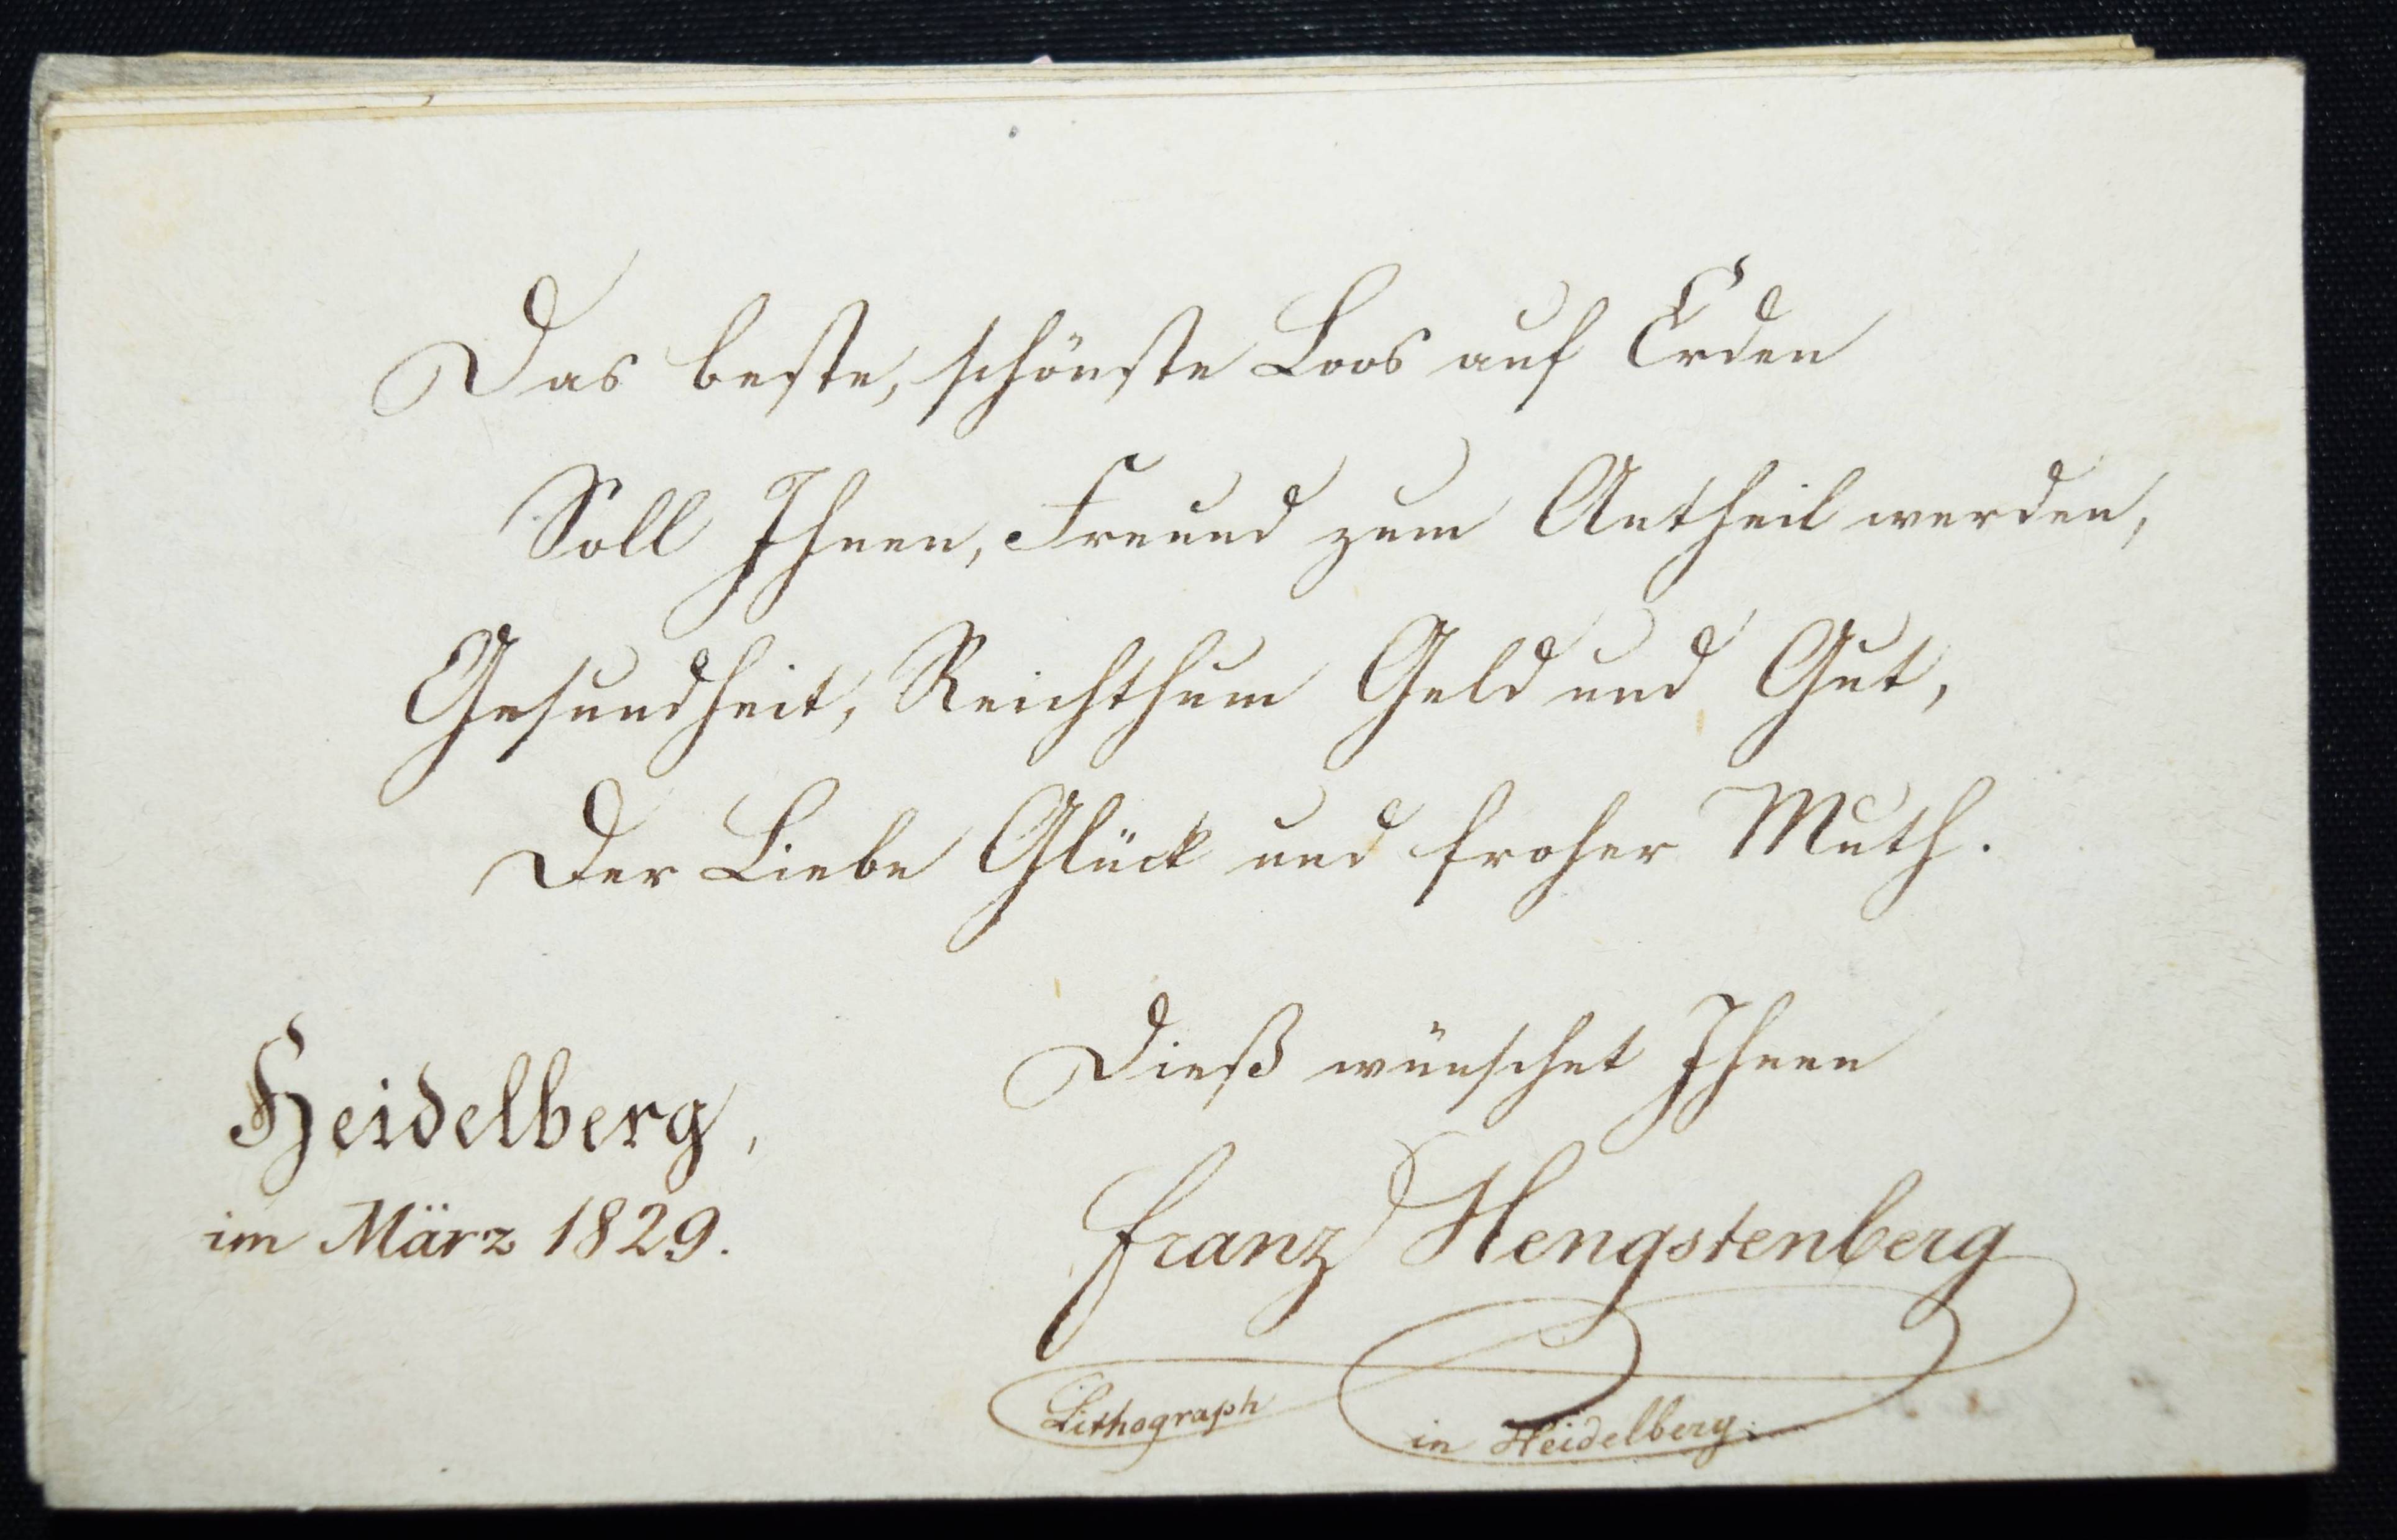 Das beste, schönste Loos auf Erden
Soll Ihnen, Freund zum Antheil werden,
Gesundheit, Reichthum Geld und Gut,
Der Liebe Glück und froher Muth.
Dieß wünschet Ihnen
Heidelberg,
im März 1829.
Franz Hengstenberg
Lithograph
in Heidelberg.